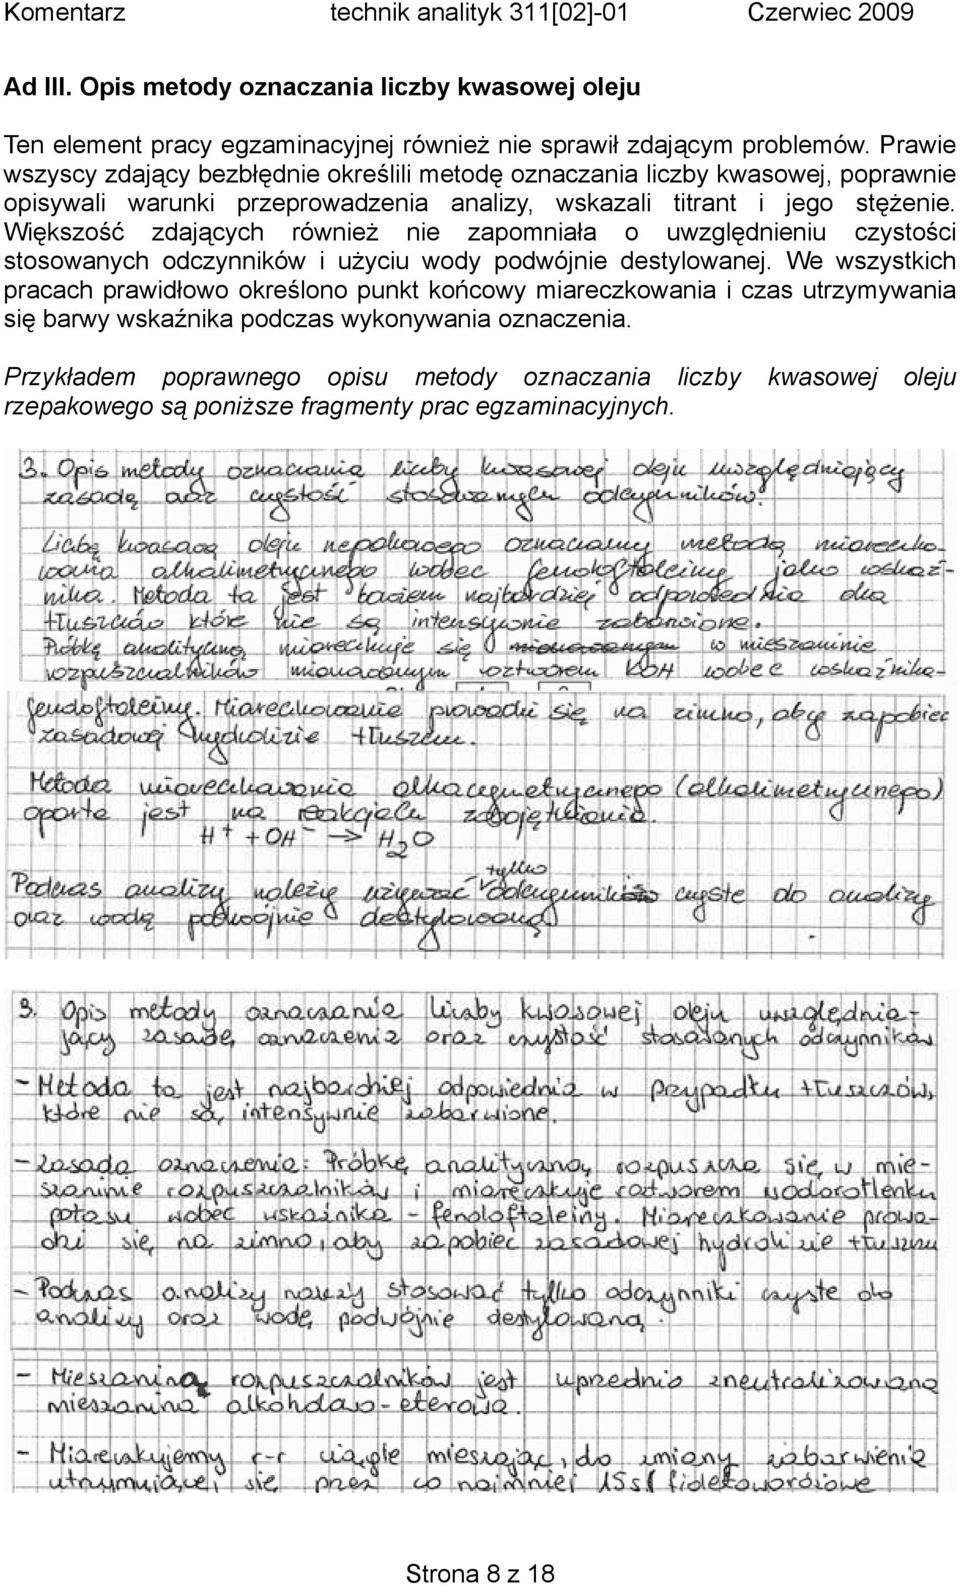 Komentarz technik analityk 311[02]-01 Czerwiec 2009
Ad III. Opis metody oznaczania liczby kwasowej oleju
Ten element pracy egzaminacyjnej również nie sprawił zdającym problemów. Prawie
wszyscy zdający bezbłędnie określili metodę oznaczania liczby kwasowej, poprawnie
opisywali warunki przeprowadzenia analizy, wskazali titrant i jego stężenie.
Większość zdających również nie zapomniała o uwzględnieniu czystości
stosowanych odczynników i użyciu wody podwójnie destylowanej. We wszystkich
pracach prawidłowo określono punkt końcowy miareczkowania i czas utrzymywania
się barwy wskaźnika podczas wykonywania oznaczenia.
Przykładem poprawnego opisu metody oznaczania liczby kwasowej oleju
rzepakowego są poniższe fragmenty prac egzaminacyjnych.
3. Opis metody oznaczania liczby kwasowej oleju uwzględniający
zasadę oraz czystość stosowanych odczynników.
Liczbę kwasową oleju rzepakowego oznaczamy metodą miareczko-
wania alkalimetrycznego wobec fenoloftaleiny jako wskaź-
nika. Metoda ta jest bowiem najbardziej odpowiednia dla
tłuszczów które nie są intensywnie zabarwione.
Próbkę analityczną miareczkuje się w mieszaninie
rozpuszczalników mianowanym roztworem KOH wobec wskaźnika-
fenoloftaleiny. Miareczkowanie prowadzi się na zimno, aby zapobiec
zasadowej hydrolizie tłuszczu.
Metoda miareczkowania alkacymetrycznego (alkalimetrycznego)
oparta jest na reakcjach zobojętniania.
H⁺ + OH⁻ → H₂O
Podczas analizy należy używać tylko odczynników czyste do analizy
oraz wodę podwójnie destylowaną
3. Opis metody oznaczania liczby kwasowej oleju uwzględnia-
jący zasadę oznaczenia oraz czystość stosowanych odczynników
- Metoda ta jest najbardziej odpowiednia w przypadku tłuszczów,
które nie są intensywnie zabarwione.
- Zasada oznaczenia: Próbkę analityczną rozpuszcza się w mie-
szaninie rozpuszczalników i miareczkuje roztworem wodorotlenku
potasu wobec wskaźnika - fenoloftaleiny. Miareczkowanie prowa-
dzi się na zimno, aby zapobiec zasadowej hydrolizie tłuszczu
- Podczas analizy należy stosować tylko odczynniki czyste do
analizy oraz wodę podwójnie destylowaną.
- Mieszaniną rozpuszczalników jest uprzednio zneutralizowana
mieszanina alkoholowo-eterowa.
- Miareczkujemy r-r ciągle mieszając, do zmiany zabarwienia
utrzymującej się przez co najmniej 15s fioletoworóżowe
Strona 8 z 18